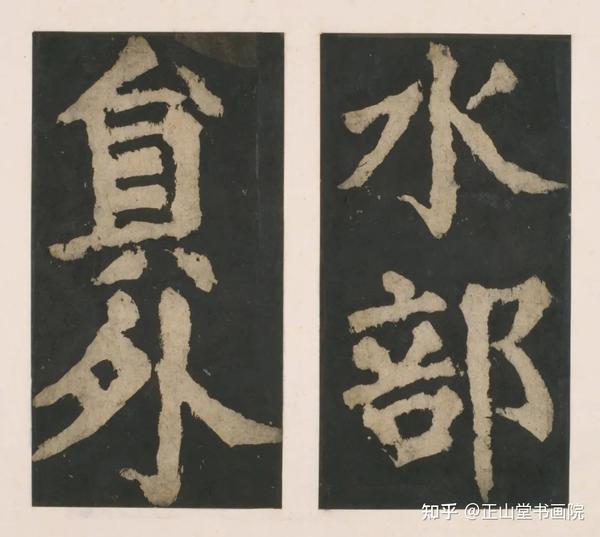 水部
貟外
知乎 @正山堂书画院